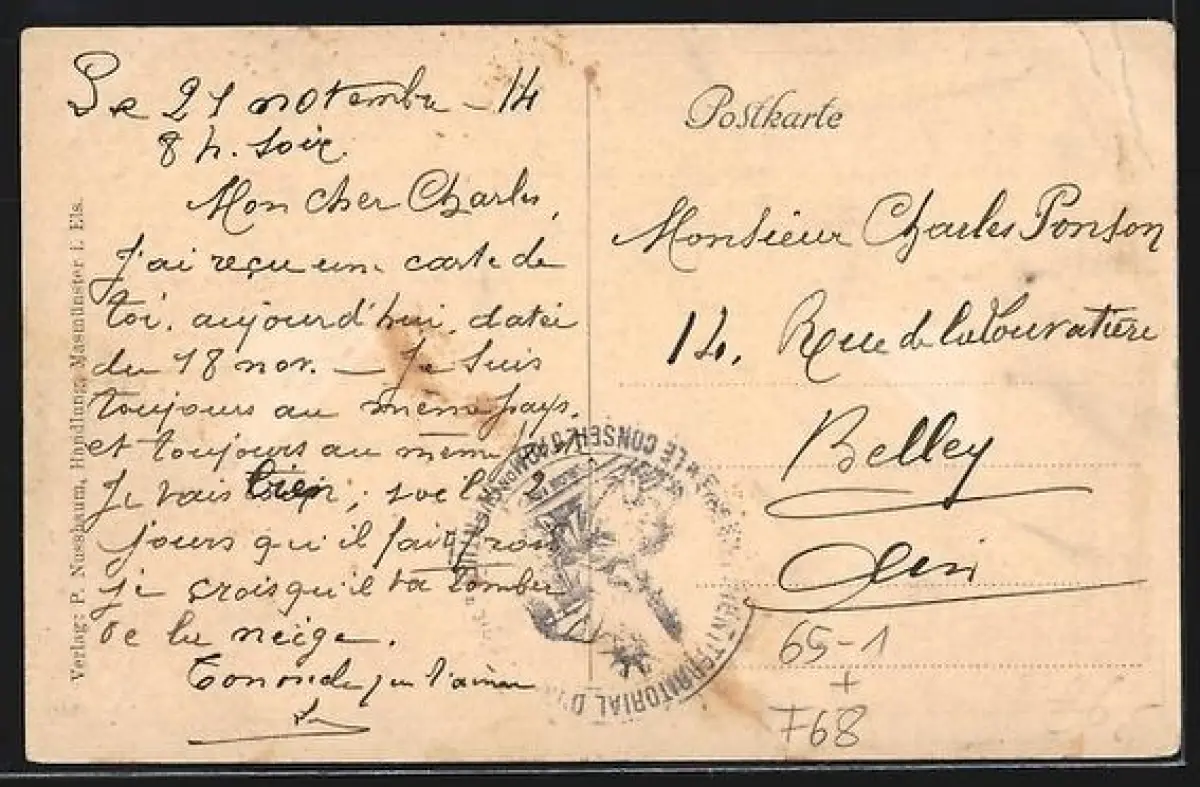 Le 21 novembre - 14
8 h. soir.
Mon cher Charles,
J'ai reçu une carte de
toi, aujourd'hui, datée
du 18 nov. — Je suis
toujours au même pays,
et toujours au même
Je vais bien; 2
jours qu'il fait froid
je crois qu'il va tomber
de la neige.
Ton oncle qui t'aime
Verlag: P. Nussbaum, Handlung, Masmünster i. Els.
Postkarte
Monsieur Charles Ponson
14, Rue de la Louvatière
Belley
Ain
65-1
+
F68
LE CONSEIL D'ADMON
TERRITORIAL D'IN